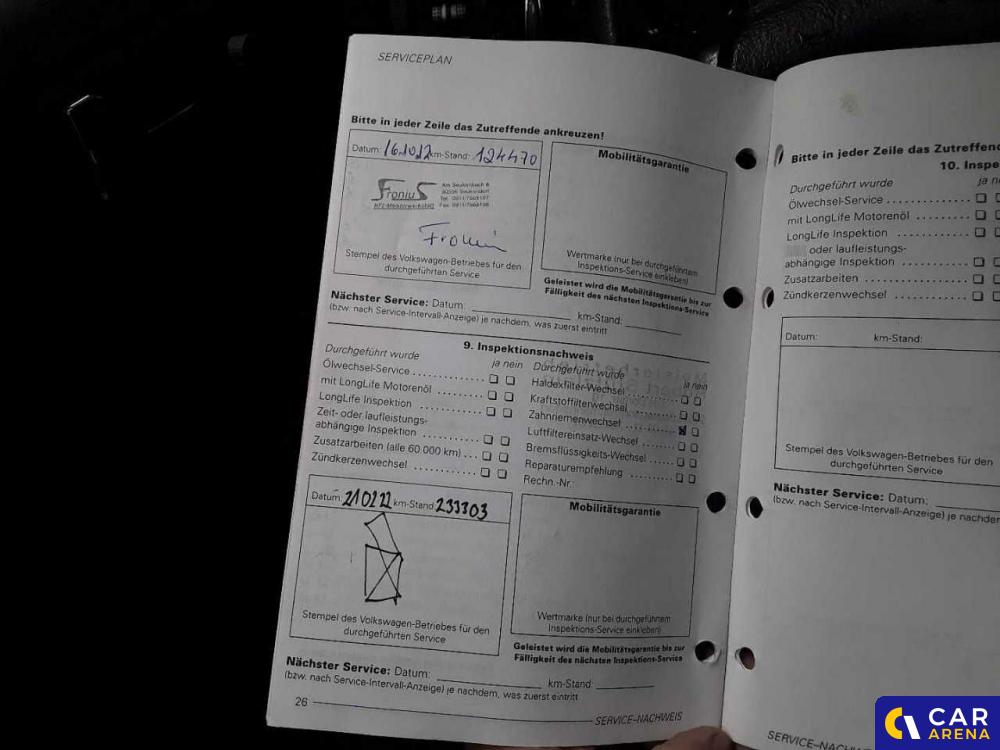 SERVICEPLAN
Bitte in jeder Zeile das Zutreffende ankreuzen!
Datum: 16.10.12 km-Stand: 124470
Mobilitätsgarantie
FroniuS
Stempel des Volkswagen-Betriebes für den
durchgeführten Service
Wertmarke (nur bei durchgeführtem
Inspektions-Service einkleben)
Geleistet wird die Mobilitätsgarantie bis zur
Fälligkeit des nächsten Inspektions-Service
Nächster Service: Datum: km-Stand:
(bzw. nach Service-Intervall-Anzeige) je nachdem, was zuerst eintritt
9. Inspektionsnachweis
Durchgeführt wurde ja nein
Ölwechsel-Service
mit LongLife Motorenöl
LongLife Inspektion
Zeit- oder laufleistungs-
abhängige Inspektion
Zusatzarbeiten (alle 60 000 km)
Zündkerzenwechsel
Durchgeführt wurde ja nein
Haldexfilter-Wechsel
Kraftstofffilterwechsel
Zahnriemenwechsel
Luftfiltereinsatz-Wechsel
Bremsflüssigkeits-Wechsel
Reparaturempfehlung
Rechn.-Nr.:
Datum: 210222 km-Stand: 233303
Mobilitätsgarantie
Stempel des Volkswagen-Betriebes für den
durchgeführten Service
Wertmarke (nur bei durchgeführtem
Inspektions-Service einkleben)
Geleistet wird die Mobilitätsgarantie bis zur
Fälligkeit des nächsten Inspektions-Service
Nächster Service: Datum: km-Stand:
(bzw. nach Service-Intervall-Anzeige) je nachdem, was zuerst eintritt
26
SERVICE-NACHWEIS
Bitte in jeder Zeile das Zutreffende
10. Inspe
Durchgeführt wurde ja
Ölwechsel-Service
mit LongLife Motorenöl
LongLife Inspektion
oder laufleistungs-
abhängige Inspektion
Zusatzarbeiten
Zündkerzenwechsel
Datum: km-Stand:
Stempel des Volkswagen-Betriebes für den
durchgeführten Service
Nächster Service: Datum:
(bzw. nach Service-Intervall-Anzeige) je nachdem
CAR
ARENA